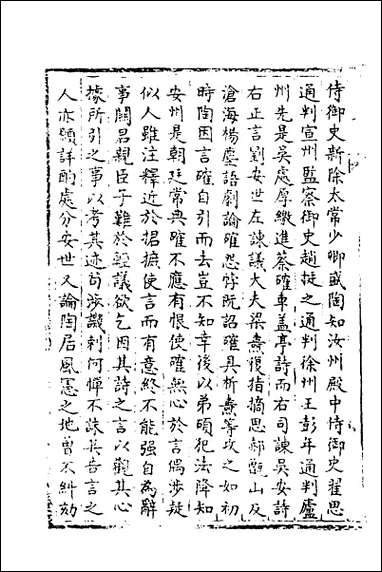 侍御史新除太常少卿盛陶知汝州殿中侍御史翟思
通判宣州監察御史趙挺之通判徐州王彭年通判廬
州先是吳處厚繳進蔡確車盖亭詩而右司諫吳安詩
右正言劉安世左諫議大夫梁燾復指摘思郝甑山及
滄海楊塵語劇論確怨謗既詔確具析燾等攻之如初
時陶因言確自引而去豈不知幸後以弟碩犯法降知
安州是朝廷常典確不應有恨使確無心於言偶涉疑
似人雖注釋近於捃摭使言而有意終不能强自為辭
事關君親臣子難於輕議欲乞因其詩之言以觀其心
據所引之事以考其迹茍涉譏刺何憚不誅然告言之
人亦願詳酌處分安世又論陶居風憲之地曾不糾劾